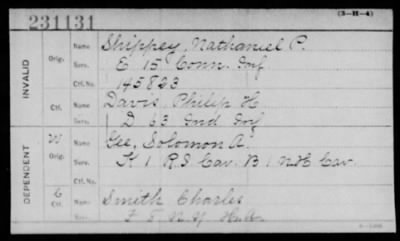 (3-H-4)
231131
INVALID
Orig. Name Shippey, Nathaniel P.
Serv. E 15 Conn. Inf
Ctf. No. 145823
Ctf. Name Davis, Philip H
Serv. D 63 Ind Inf
DEPENDENT
W Orig. Name Gee, Solomon A.
Serv. K 1 R.I. Cav. B 1 N.H. Cav.
Ctf. No.
C Ctf. Name Smith Charles
Serv. F 5 N.Y. H.A.